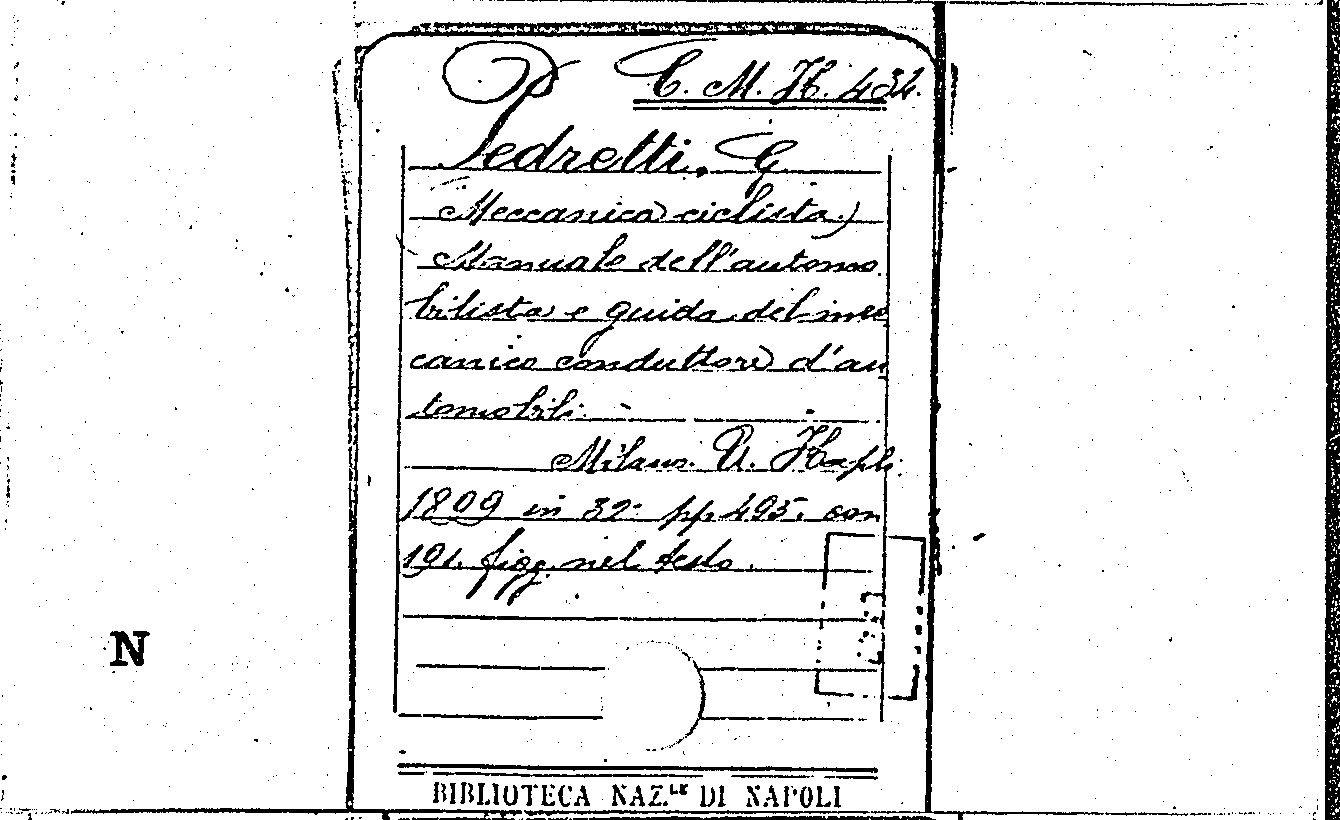 C. M. H. 434.
Pedretti, G
Meccanica ciclista)
Manuale dell'automo
bilista e guida del mec
canico conduttore d'au
tomobili. -
Milano. U. Hoepli.
1809 in 32° pp. 495. con
191. figg. nel testo.
N
BIBLIOTECA NAZ.LE DI NAPOLI